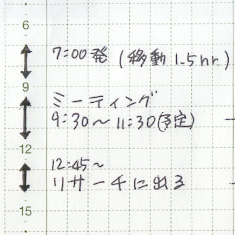 6
7:00発 (移動 1.5hr)
9
ミーティング
9:30～11:30(予定)
12
12:45～
リサーチに出る
15